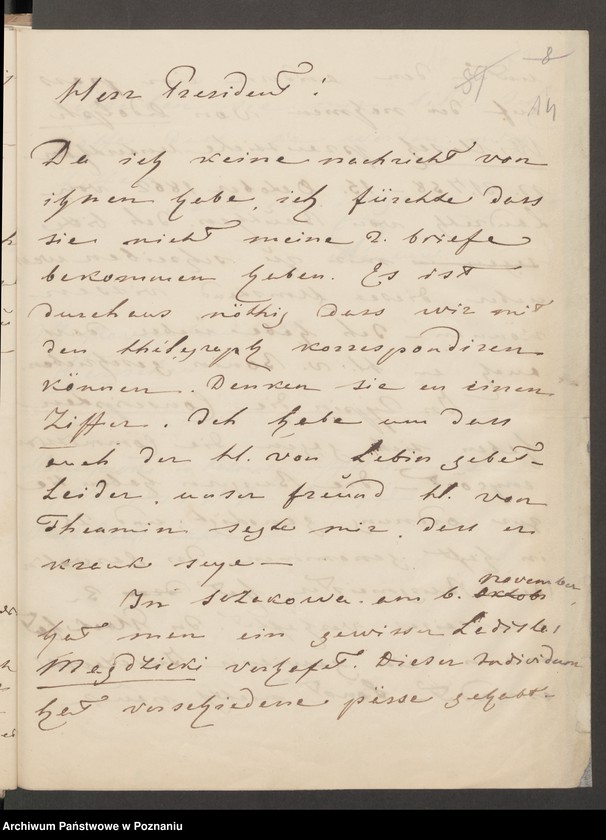 8
87
A4
Herr President!
Da ich keine nachricht von
ihnen habe, ich fürchte dass
sie nicht meine 2. briefe
bekommen haben. Es ist
durchaus nöthig dass wir mit
den thélegraph korrespondiren
können. Denken sie an einen
Ziffer. Ich habe um dass
auch der H. von Lebin gebet-
Leider, unser freund H. von
Theamin segte mir, dass er
krank seye —
In Szzakowa. am 6. oktob november,
hat man ein gewisser Ladislas
Mędzicki verhafet. Dieser Individuum
hat verschiedene pässe gehabt-
Archiwum Państwowe w Poznaniu